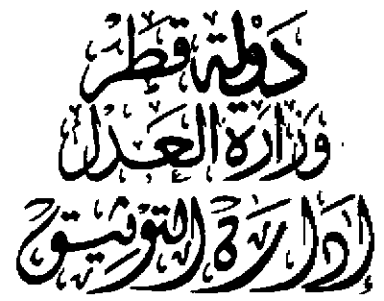 دَوْلَة قَطَرْ
وَزَارَةُ العَدْلِ
إدارة التوثيق